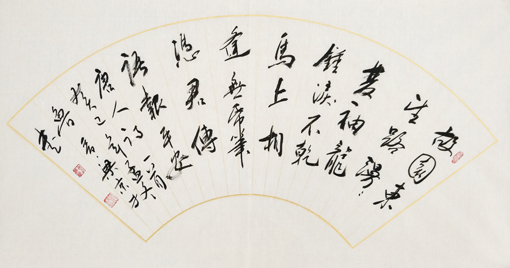 故園東
望路漫〻
雙袖龍
鍾淚不乾
馬上相
逢無紙筆
憑君傳
語報平安
唐人詩一首